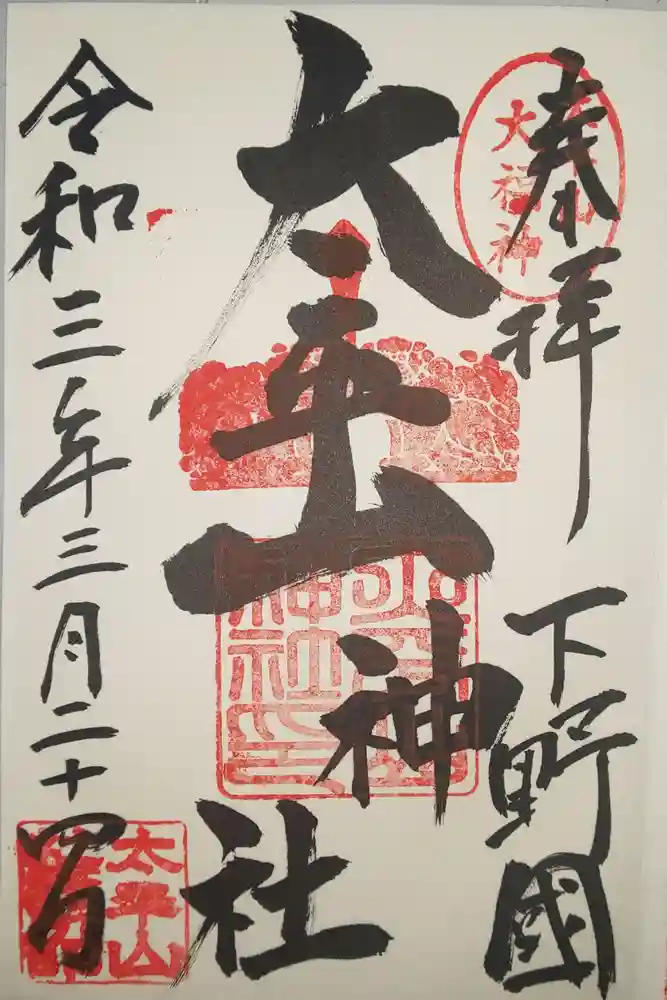 奉拝
下野國
太平山神社
令和三年三月二十四日
大福神
太平山